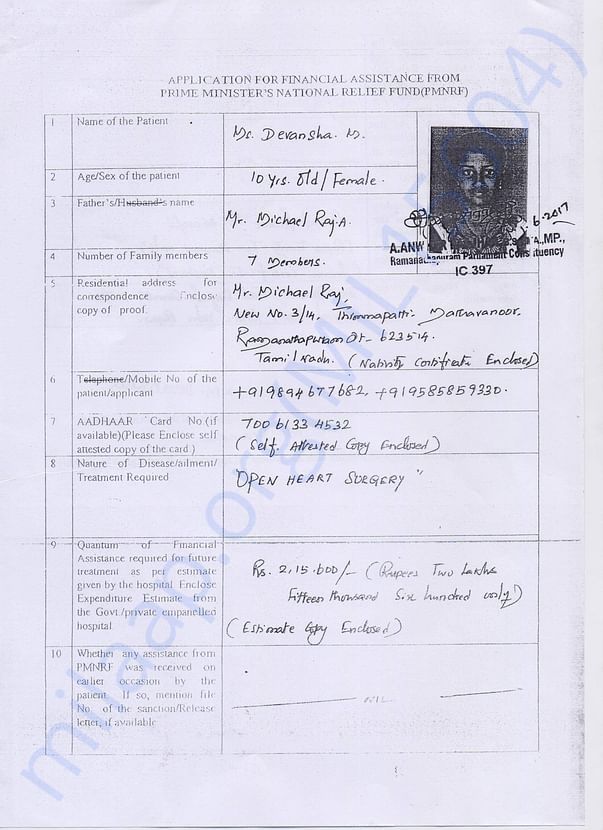 APPLICATION FOR FINANCIAL ASSISTANCE FROM
PRIME MINISTER'S NATIONAL RELIEF FUND(PMNRF)
1 Name of the Patient
Ms. Devansha. M.
2 Age/Sex of the patient
10 Yrs. Old / Female.
3 Father's/Husband's name
Mr. Michael Raj.A.
6-2017
A.ANW M.A.,MP.,
Ramanathapuram Parliament Constituency
IC 397
4 Number of Family members
7 Members.
5 Residential address for
correspondence Enclose
copy of proof.
Mr. Michael Raj,
New No. 3/14,
Ramanathapuram Dt- 623514.
Tamil Nadu. (Nativity Certificate Enclosed)
6 Telephone/Mobile No of the
patient/applicant
+919894677682, +919585859330.
7 AADHAAR Card No.(if
available)(Please Enclose self
attested copy of the card )
700 6133 4532
(Self. Attested Copy Enclosed)
8 Nature of Disease/ailment/
Treatment Required
"OPEN HEART SURGERY"
9 Quantum of Financial
Assistance required for future
treatment as per estimate
given by the hospital Enclose
Expenditure Estimate from
the Govt./private empanelled
hospital
Rs. 2,15.600/- (Rupees Two Lakhs
Fifteen thousand Six hundred only)
(Estimate Copy Enclosed)
10 Whether any assistance from
PMNRF was received on
earlier occasion by the
patient. If so, mention file
No. of the sanction/Release
letter, if available
NIL
milaap.org